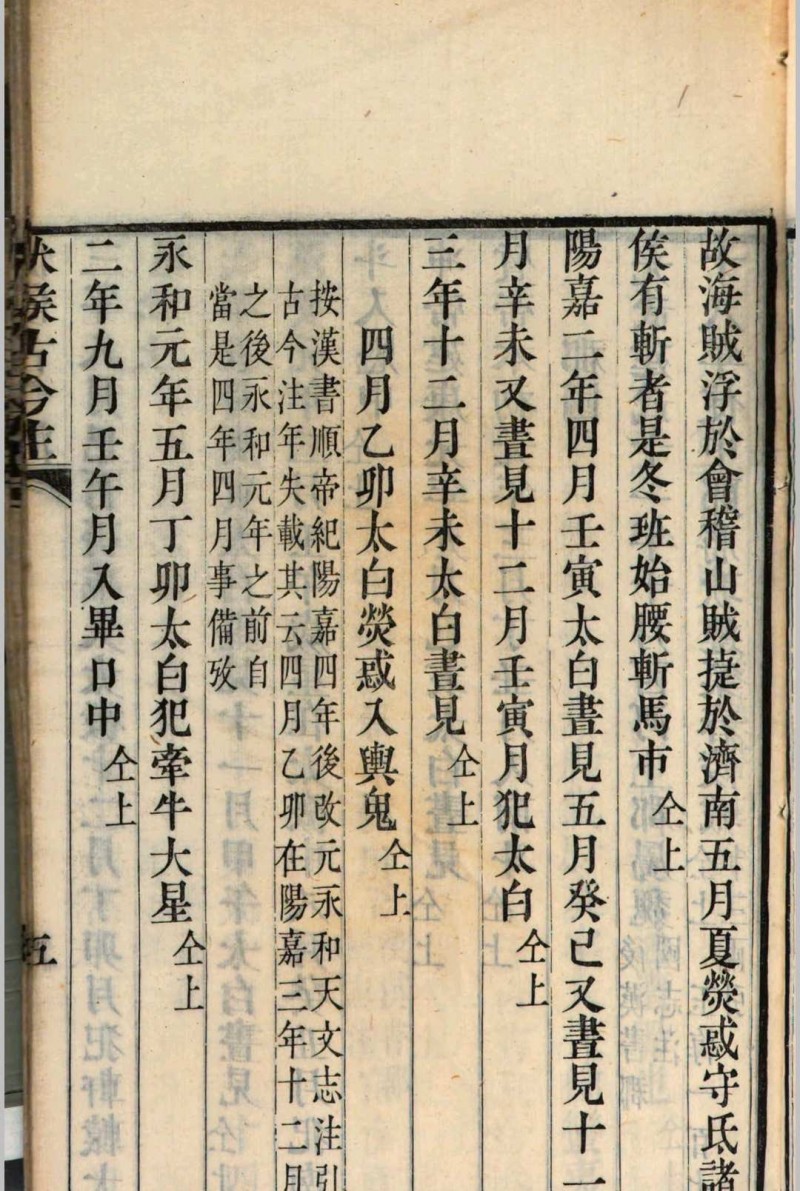 故海賊浮於會稽山賊捷於濟南五月夏熒惑守氐諸
侯有斬者是冬班始腰斬馬市仝上
陽嘉二年四月壬寅太白晝見五月癸巳又晝見十一
月辛未又晝見十二月壬寅月犯太白仝上
三年十二月辛未太白晝見仝上
四月乙卯太白熒惑入輿鬼仝上
按漢書順帝紀陽嘉四年後改元永和天文志注引
古今注年失載其云四月乙卯在陽嘉三年十二月
之後永和元年之前自
當是四年四月事備攷
永和元年五月丁卯太白犯牽牛大星仝上
二年九月壬午月入畢口中仝上
伏侯古今注
五